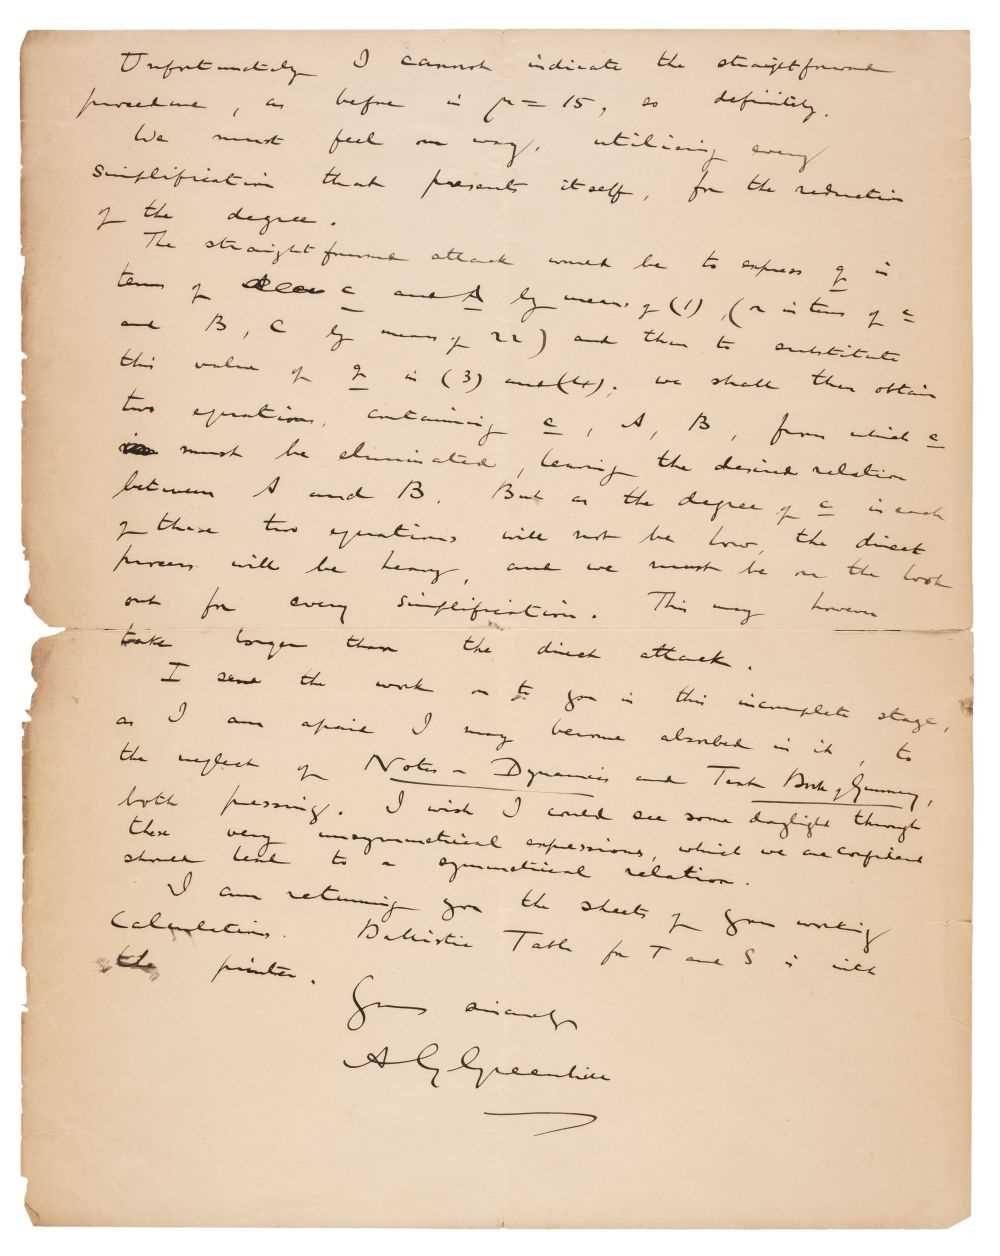 Unfortunately I cannot indicate the straightforward
procedure, as before in μ = 15, so definitely.
We must feel our way, utilising every
simplification that presents itself, for the reduction
of the degree.
The straightforward attack would be to express q in
terms of c and A by means of (1), (r in terms of c
and B, C by means of 22) and then to substitute
this value of q in (3) and (4); we shall then obtain
two equations, containing c, A, B, from which c
must be eliminated, leaving the desired relation
between A and B. But as the degree of c in each
of these two equations will not be low, the direct
process will be heavy, and we must be on the look
out for every simplification. This may however
take longer than the direct attack.
I send the work on to you in this incomplete stage,
as I am afraid I may become absorbed in it, to
the neglect of Notes on Dynamics and Text Book of Gunnery,
both pressing. I wish I could see some daylight through
these very unsymmetrical expressions, which we are confident
should lead to a symmetrical relation.
I am returning you the sheets of your working
calculations. Ballistic Table for T and S is with
the printer.
Yours sincerely
A G Greenhill